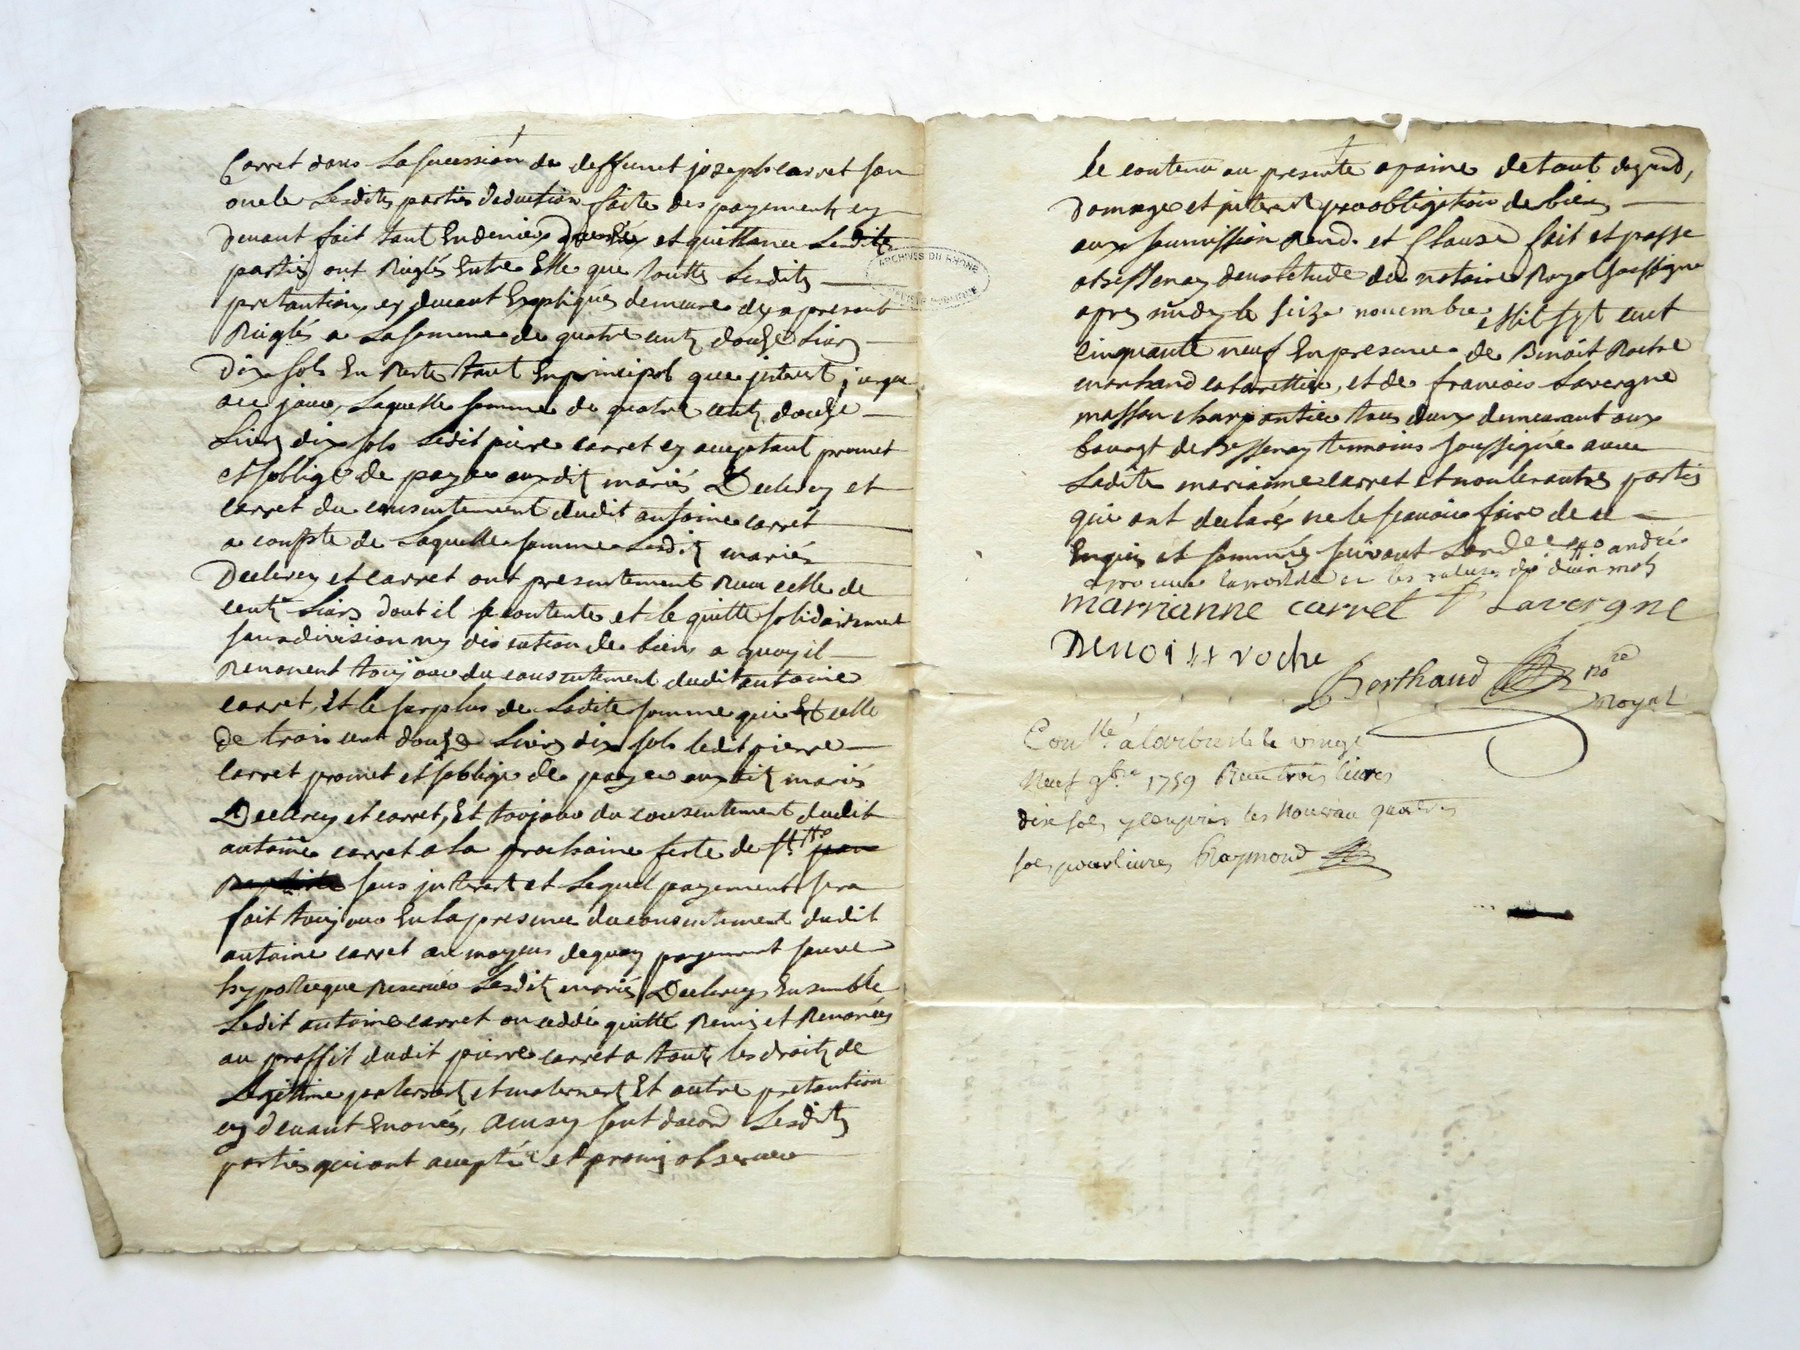 Carret dans La sucession de deffunct joseph carret son
oncle Lesdits parties deduction faite des payements cy
devant fait tant En deniers et quittance Lesdite
partis ont Riiglés Entre Elle que toutte Lesdits
pretantions cy devant Expliqués demeure des apresent
Riiglés a La somme de quatre centz douze Livres
Dix sols En Reste tant En principal que jnterest jusque
a ce jour, Laquelle somme de quatre centz douze
Livres dix sols Ledit pierre carret cy acceptant promet
et soblige de payer auxditz mariés Declerey et
carret du consentement dudit antoine carret
a compte de Laquelle somme Lesditz mariés
Declerey et carret ont presentement Receu celle de
centz Livres dont il se contente et le quitte solidairement
sans division ny discution de biens a quoy il
Renoncent toujour du consentement dudit antoine
carret, Et le surplus de Ladite somme qui Est celle
de trois cent douze Livres dix sols ledit pierre
carret promet et soblige de payer auxditz mariés
Declerey et carret, Et toujour du consentement dudit
antoine carret a la prochaine feste de st jean
sans jnterest et Lequel payement sera
fait toujour En la presence du consentement dudit
antoine carret au moyens de quoy payement sauve
hypotecque Reservée Lesditz mariés Declerey Ensemble
Ledit antoine carret on ceddé quitté Remis et Renoncés
au proffit dudit pierre carret a touts les droitz de
Legitime paternert et maternert Et autre pretantion
cy devant Enoncés, ainsy sont dacord Lesditz
parties qui ont accepté et promis observer
le contenu au presente a paine de tout depend,
Domage et jnterest par obligation de biens
aux soumission Rend. et Clause fait et passe
a bessenay dans letude du notaire Royal soussigne
apres midy le seize novembre mil sept cent
cinquante neuf En presence de Benoit Roche
marchand cabarettier, et de francois Lavergne
masson charpentier tous deux demeurant aux
bourgt de Bessenay temoins soussigne avec
Ladite marianne carret et non les autres partis
qui ont declarés ne le scavoir faire de ce
Enquis et sommés suivant Lord st andré
approuvé
marrianne carret Lavergne
Benoist roche
Berthaud no.re
Royal
Con.llé a Larbresle le vingt
Neuf 9bre 1759 Recu trois livres
dix sols y compris les Nouveau quatres
sols pour livres Raymond
ARCHIVES DU RHONE